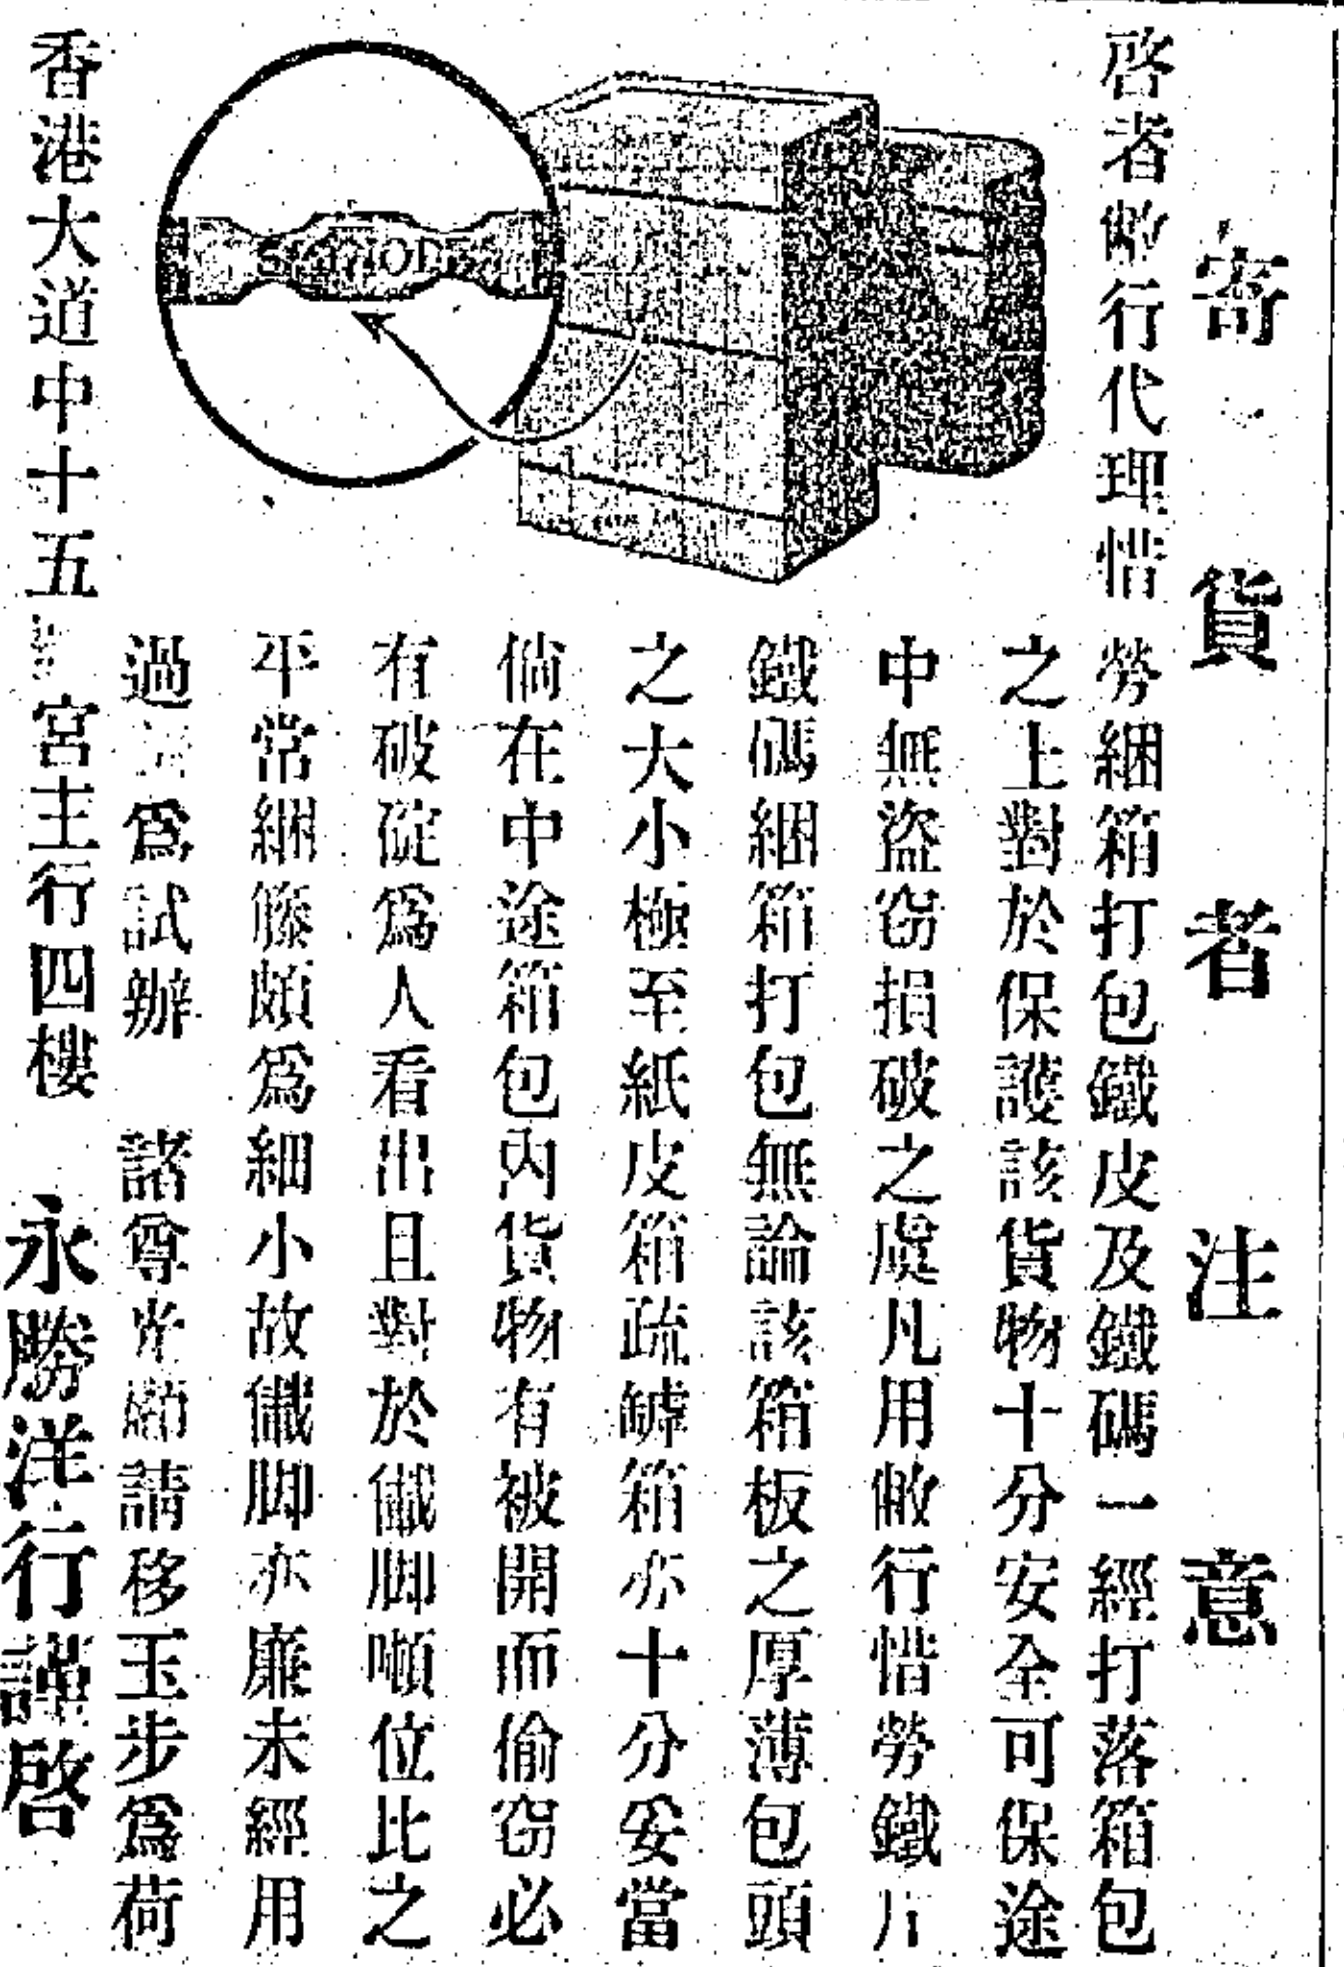 寄貨者注意
啓者敝行代理惜勞綑箱打包鐵皮及鐵碼一經打落箱包
之上對於保護該貨物十分安全可保途
中無盜窃損破之虞凡用敝行惜勞鐵片
鐵碼綑箱打包無論該箱板之厚薄包頭
之大小極至紙皮箱疏罅箱亦十分妥當
倘在中途箱包內貨物有被開而偷窃必
有破碇爲人看出且對於儎脚噸位比之
平常綑籐頗爲細小故儎脚亦廉未經用
過 爲試辦 諸尊光顧請移玉步爲荷
香港大道中十五 宮主行四樓 永勝洋行謹啓